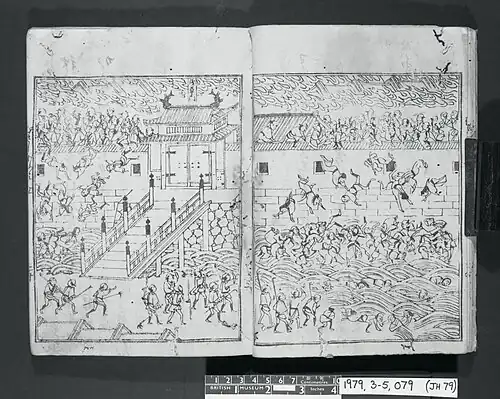 1 2 3 4 5 6 7
Centimetres
BRITISH MUSEUM
1 2 3 4
Inches
1979, 3-5, 079 (JH 79)